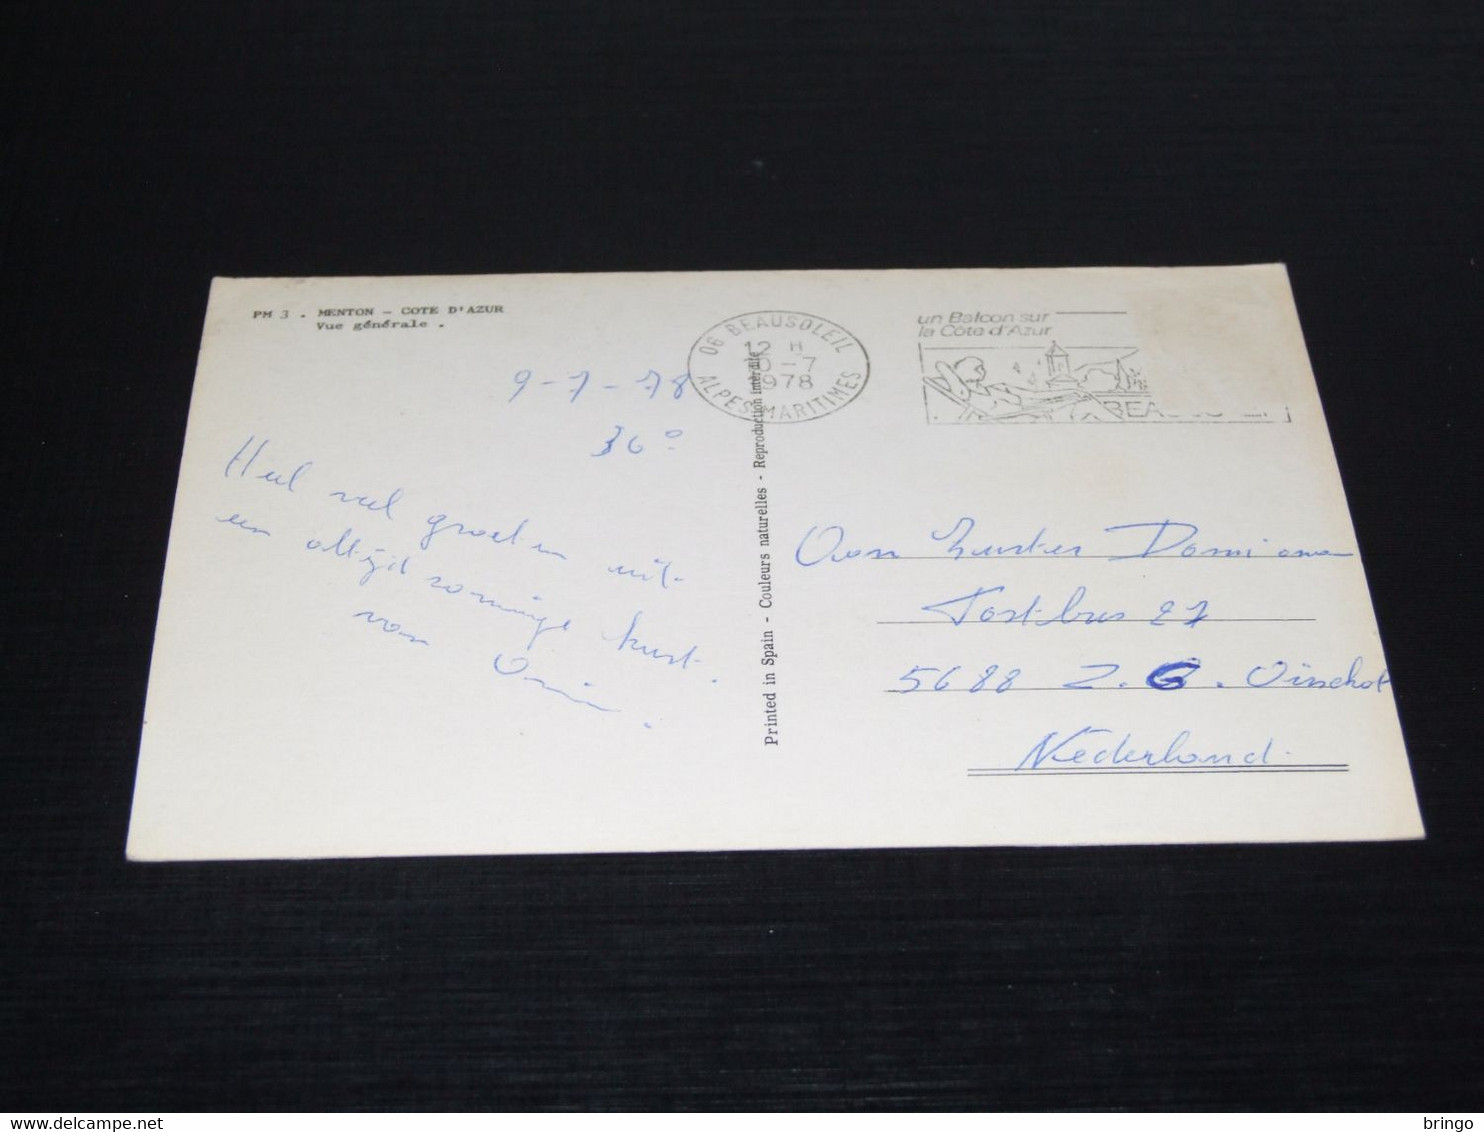 PM 3 . MENTON - COTE D'AZUR
Vue générale .
9-7-78
36°
Heel veel groeten uit
een altijd zonnige kust.
van
06 BEAUSOLEIL
12 H
10-7
1978
ALPES-MARITIMES
un Balcon sur
la Côte d'Azur
BEAUSOLEIL
Printed in Spain - Couleurs naturelles - Reproduction interdite
Aan Zuster Domiana
Postbus 27
5688 Z.G. Oirschot
Nederland.
delcampe.net
bringo